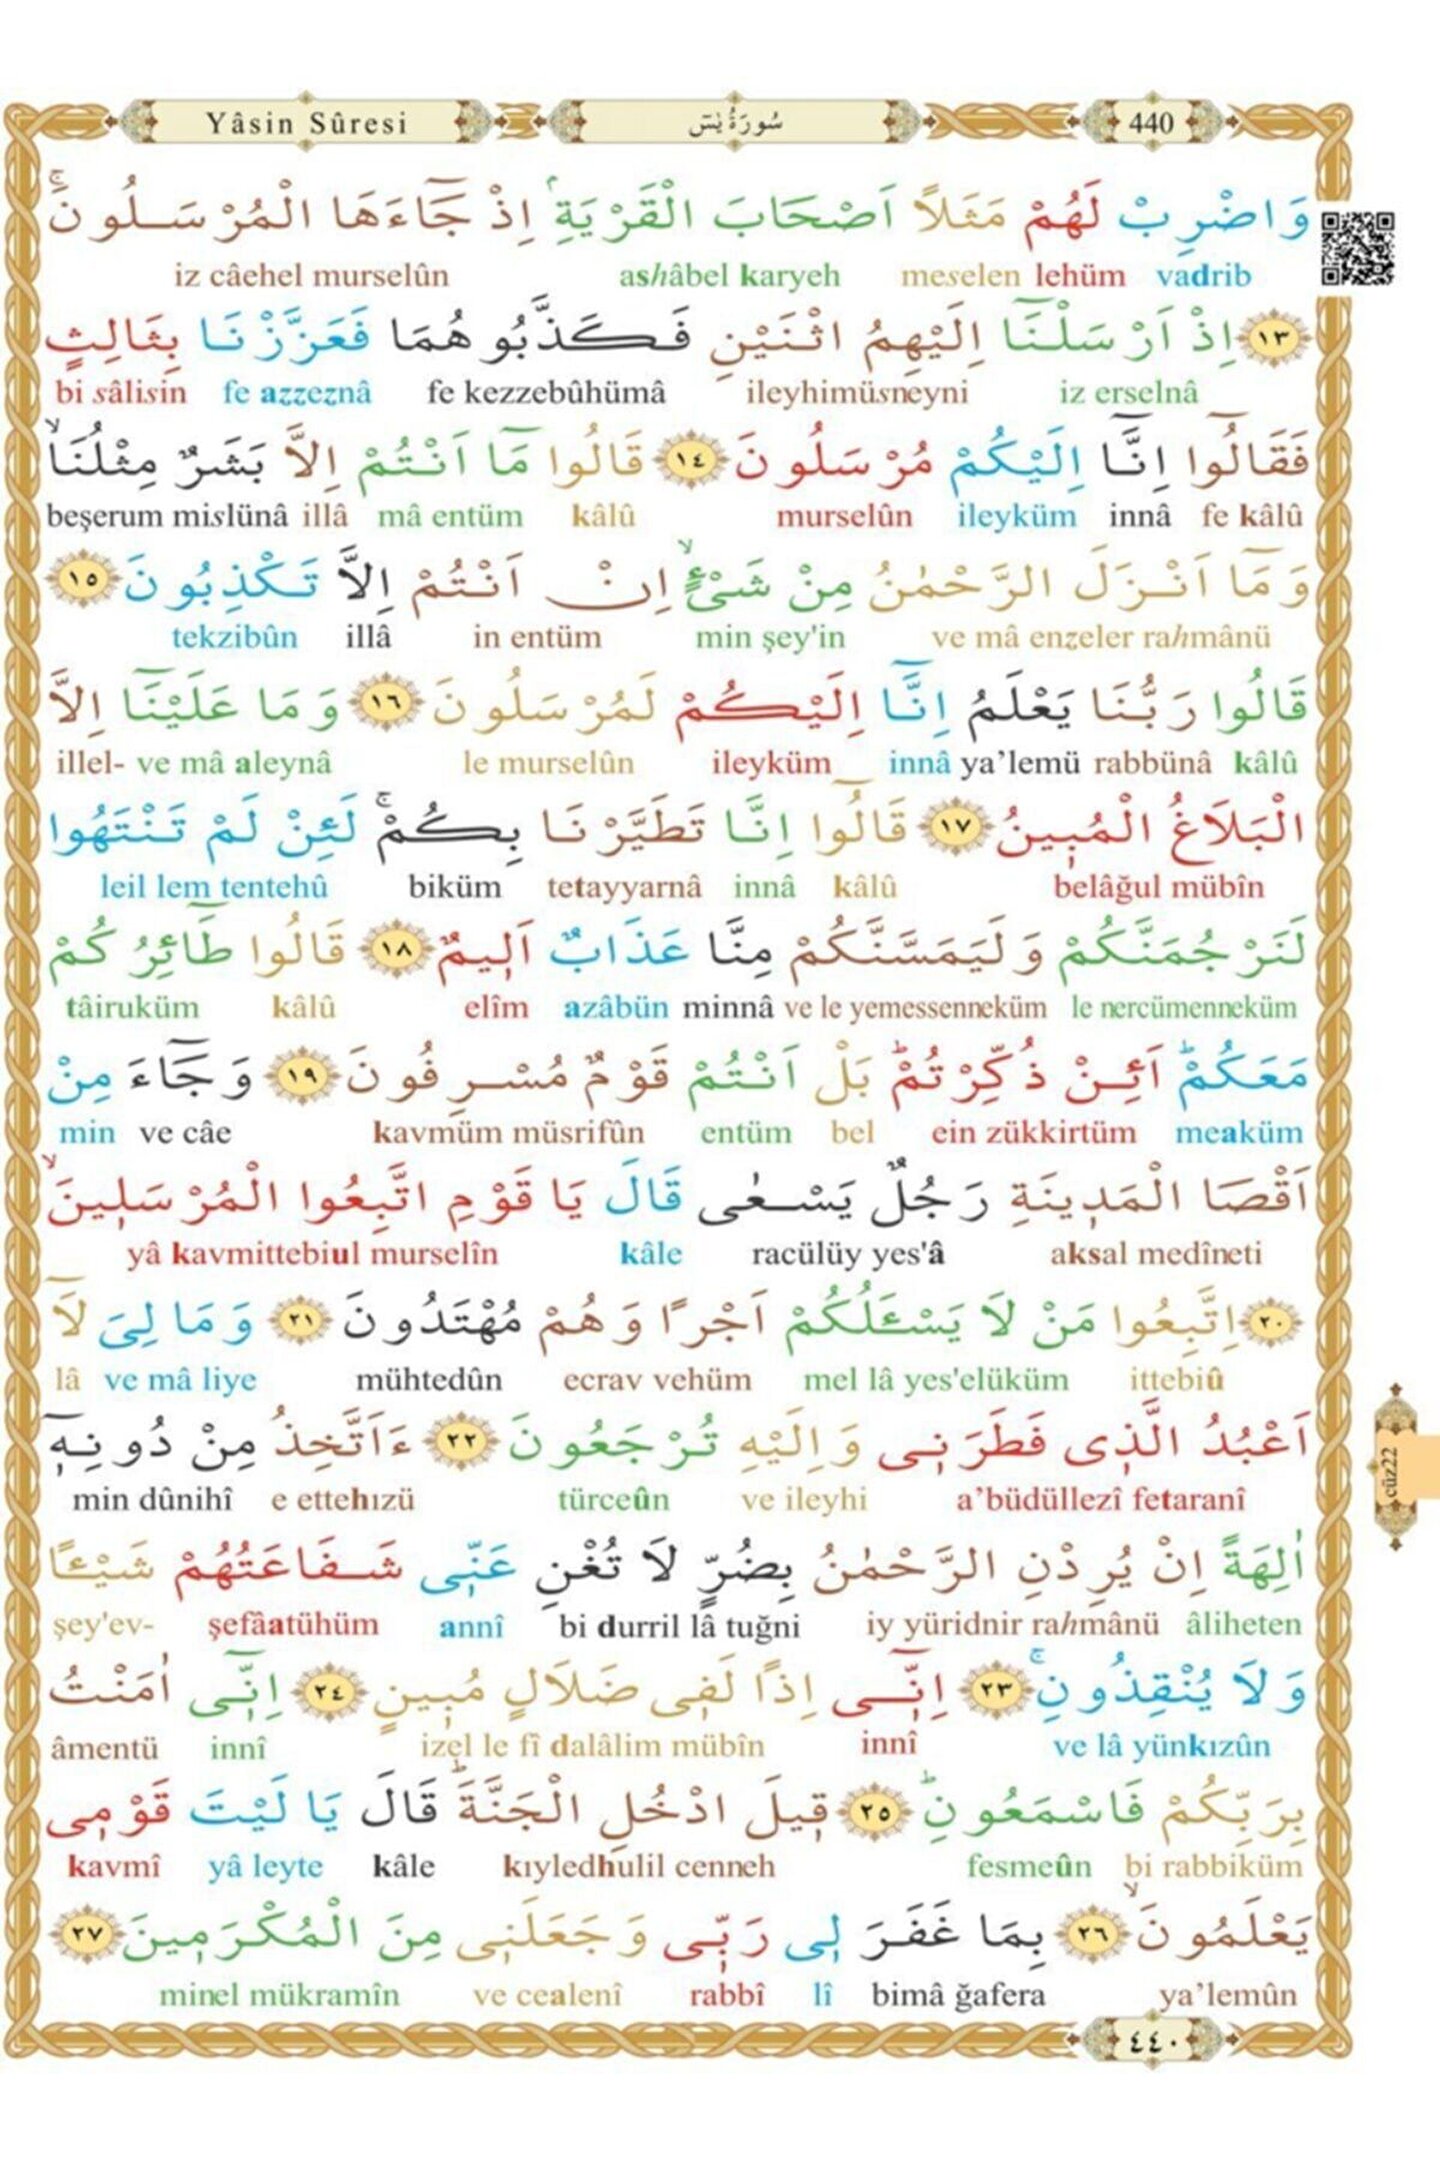 Yâsin Sûresi سُورَةُ يٰسٓ 440
وَاضْرِبْ لَهُمْ مَثَلًا اَصْحَابَ الْقَرْيَةِۢ اِذْ جَٓاءَهَا الْمُرْسَلُونَۚ
iz câehel murselûn ashâbel karyeh meselen lehüm vadrib
﴿١٣﴾ اِذْ اَرْسَلْنَٓا اِلَيْهِمُ اثْنَيْنِ فَكَذَّبُوهُمَا فَعَزَّزْنَا بِثَالِثٍ
bi sâlisin fe azzeznâ fe kezzebûhümâ ileyhimüsneyni iz erselnâ
فَقَالُٓوا اِنَّٓا اِلَيْكُمْ مُرْسَلُونَ ﴿١٤﴾ قَالُوا مَٓا اَنْتُمْ اِلَّا بَشَرٌ مِثْلُنَاۙ
beşerum mislünâ illâ mâ entüm kâlû murselûn ileyküm innâ fe kâlû
وَمَٓا اَنْزَلَ الرَّحْمٰنُ مِنْ شَيْءٍۙ اِنْ اَنْتُمْ اِلَّا تَكْذِبُونَ ﴿١٥﴾
tekzibûn illâ in entüm min şey'in ve mâ enzeler rahmânü
قَالُوا رَبُّنَا يَعْلَمُ اِنَّٓا اِلَيْكُمْ لَمُرْسَلُونَ ﴿١٦﴾ وَمَا عَلَيْنَٓا اِلَّا
illel- ve mâ aleynâ le murselûn ileyküm innâ ya’lemü rabbünâ kâlû
الْبَلَاغُ الْمُب۪ينُ ﴿١٧﴾ قَالُٓوا اِنَّا تَطَيَّرْنَا بِكُمْۚ لَئِنْ لَمْ تَنْتَهُوا
leil lem tentehû biküm tetayyarnâ innâ kâlû belâğul mübîn
لَنَرْجُمَنَّكُمْ وَلَيَمَسَّنَّكُمْ مِنَّا عَذَابٌ اَل۪يمٌ ﴿١٨﴾ قَالُوا طَٓائِرُكُمْ
tâiruküm kâlû elîm azâbün minnâ ve le yemessenneküm le nercümenneküm
مَعَكُمْۜ اَئِنْ ذُكِّرْتُمْۜ بَلْ اَنْتُمْ قَوْمٌ مُسْرِفُونَ ﴿١٩﴾ وَجَٓاءَ مِنْ
min ve câe kavmüm müsrifûn entüm bel ein zükkirtüm meaküm
اَقْصَا الْمَد۪ينَةِ رَجُلٌ يَسْعٰى قَالَ يَا قَوْمِ اتَّبِعُوا الْمُرْسَل۪ينَۙ
yâ kavmittebiul murselîn kâle racülüy yes'â aksal medîneti
﴿٢٠﴾ اِتَّبِعُوا مَنْ لَا يَسْـَٔلُكُمْ اَجْرًا وَهُمْ مُهْتَدُونَ ﴿٢١﴾ وَمَا لِيَ لَٓا
lâ ve mâ liye mühtedûn ecrav vehüm mel lâ yes'elüküm ittebiû
اَعْبُدُ الَّذ۪ي فَطَرَن۪ي وَاِلَيْهِ تُرْجَعُونَ ﴿٢٢﴾ ءَاَتَّخِذُ مِنْ دُونِه۪ٓ
min dûnihî e ettehızü türceûn ve ileyhi a’büdüllezî fetaranî
اٰلِهَةً اِنْ يُرِدْنِ الرَّحْمٰنُ بِضُرٍّ لَا تُغْنِ عَنّ۪ي شَفَاعَتُهُمْ شَيْـًٔا
şey'ev- şefâatühüm annî bi durril lâ tuğni iy yüridnir rahmânü âliheten
وَلَا يُنْقِذُونِۚ ﴿٢٣﴾ اِنّ۪ٓي اِذًا لَف۪ي ضَلَالٍ مُب۪ينٍ ﴿٢٤﴾ اِنّ۪ٓي اٰمَنْتُ
âmentü innî izel le fî dalâlim mübîn innî ve lâ yünkızûn
بِرَبِّكُمْ فَاسْمَعُونِۜ ﴿٢٥﴾ ق۪يلَ ادْخُلِ الْجَنَّةَۜ قَالَ يَا لَيْتَ قَوْم۪ي
kavmî yâ leyte kâle kıyledhulil cenneh fesmeûn bi rabbiküm
يَعْلَمُونَۙ ﴿٢٦﴾ بِمَا غَفَرَ ل۪ي رَبّ۪ي وَجَعَلَن۪ي مِنَ الْمُكْرَم۪ينَ ﴿٢٧﴾
minel mükramîn ve cealenî rabbî lî bimâ ğafera ya’lemûn
٤٤٠
cüz22